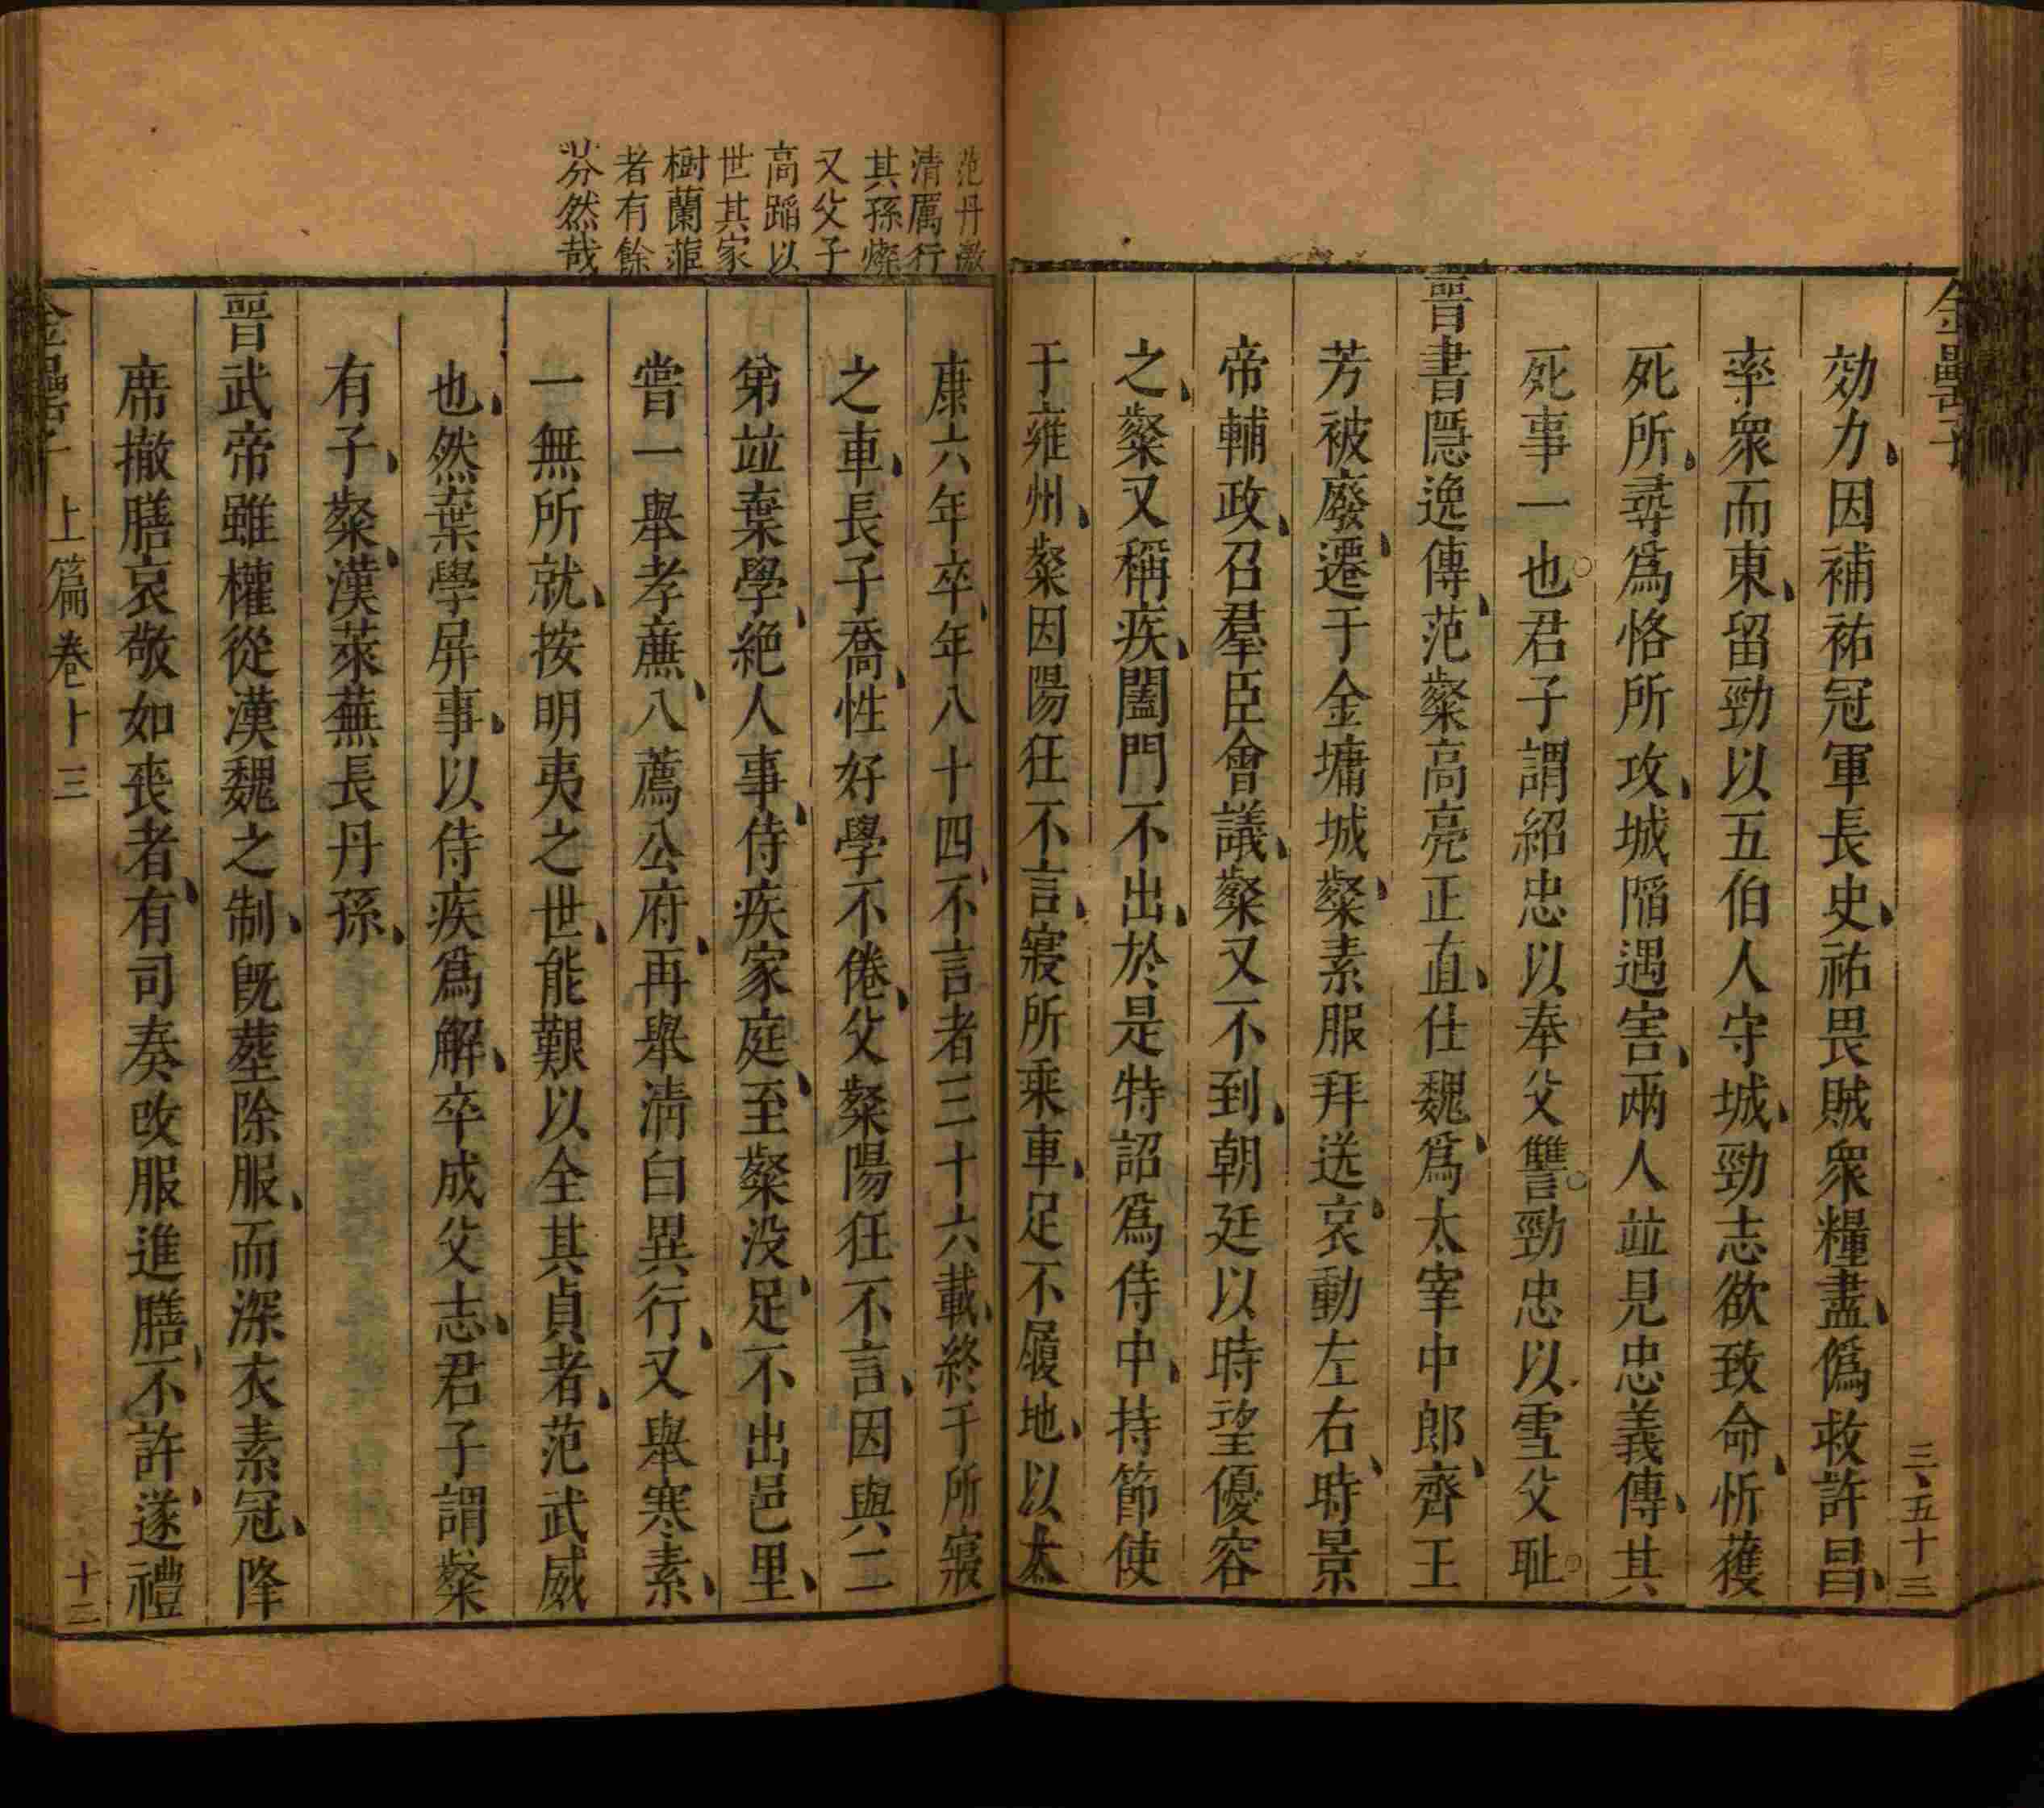 金罍子
三、五十三
効力、因補祐冠軍長史、祐畏賊衆糧盡、僞救許昌、
率衆而東、留勁以五伯人守城、勁志欲致命、忻獲
死所、尋爲恪所攻、城陷遇害、兩人並見忠義傳、其
死事一也。君子謂紹忠以奉父讐。勁忠以雪父耻。
晋書隱逸傳、范粲高亮正直、仕魏、爲太宰中郎、齊王
芳被廢、遷于金墉城、粲素服拜送、哀動左右、時景
帝輔政、召羣臣會議、粲又不到、朝廷以時望優容
之、粲又稱疾、闔門不出、於是特詔爲侍中、持節使
于雍州、粲因陽狂不言、寢所乘車、足不履地、以太
范丹激
清厲行
其孫燦
又父子
高蹈以
世其家
樹蘭蓀
者有餘
芬然哉
康六年卒、年八十四、不言者三十六載、終于所寢
之車、長子喬、性好學不倦、父粲陽狂不言、因與二
弟並棄學、絶人事、侍疾家庭、至粲没、足不出邑里、
嘗一舉孝廉、八薦公府、再舉清白異行、又舉寒素、
一無所就、按明夷之世、能艱以全其貞者、范武威
也、然棄學屏事、以侍疾爲解、卒成父志、君子謂粲
有子、粲、漢萊蕪長丹孫、
晋武帝雖權從漢魏之制、旣葬除服、而深衣素冠、降
席撤膳哀敬如喪者、有司奏改服進膳、不許、遂禮
金罍子 上篇卷十三
十二